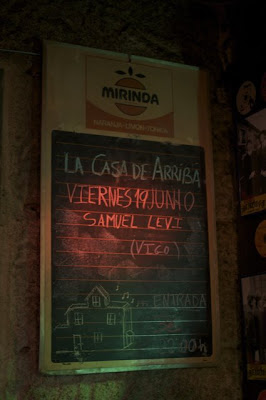 MIRINDA
NARANJA-LIMON-TONICA
LA CASA DE ARRIBA
VIERNES 19 JUNIO
SAMUEL LEVI
(VIGO)
ENTRADA